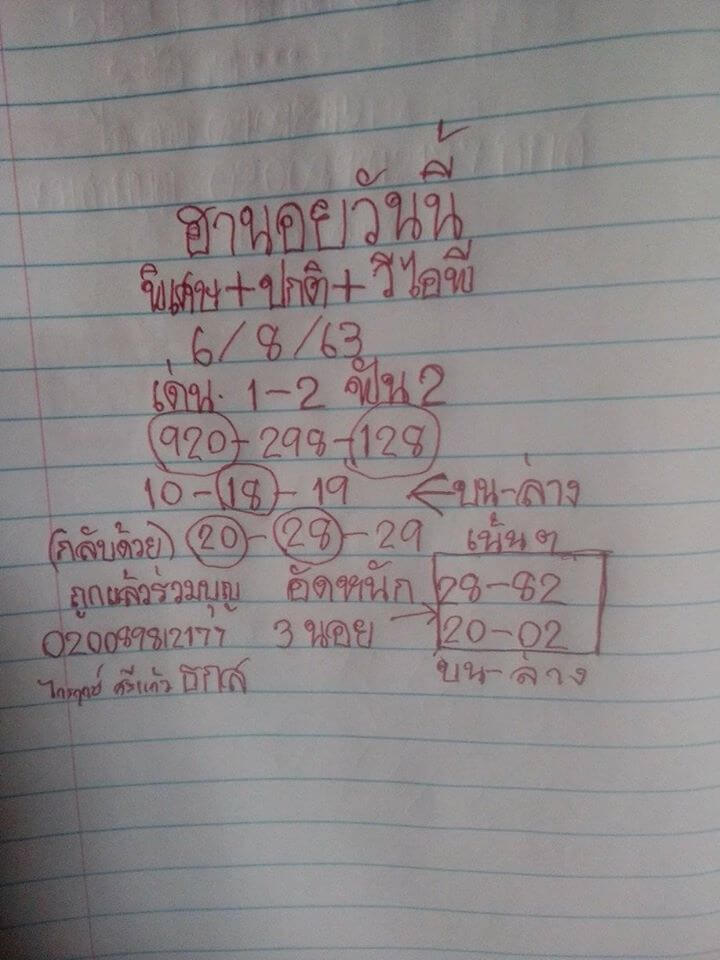 ฮานอยวันนี้
พิเศษ+ปกติ+วีไอพี
6/8/63
เด่น. 1-2 ฟัน 2
920-298-128
10-18-19 ← บน-ล่าง
(กลับด้วย) 20-28-29 เน้นๆ
ถูกแล้วร่วมบุญ อัดหนัก 28-82
020089812177 3 นอย → 20-02
ศรีแก้ว ธกส บน-ล่าง